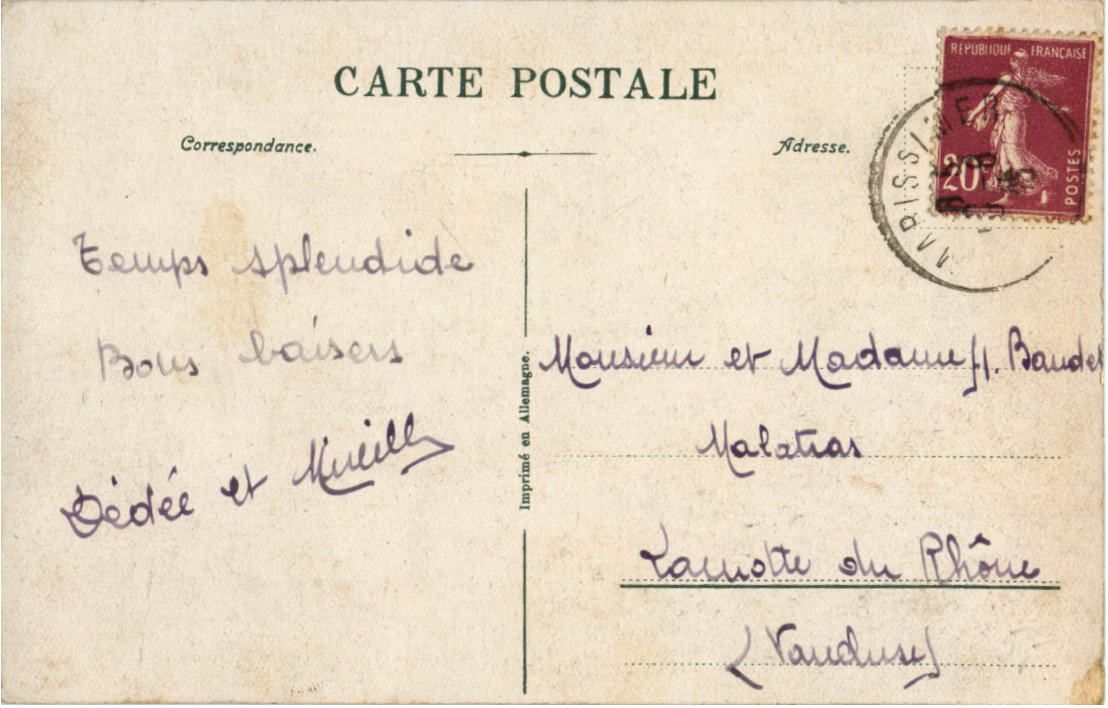 CARTE POSTALE
Correspondance.
Adresse.
REPUBLIQUE FRANÇAISE
POSTES
20c
Temps splendide
Bons baisers
Dédée et Mireille
Imprimé en Allemagne.
Monsieur et Madame Baudet
Malatras
Lamotte du Rhône
(Vaucluse)